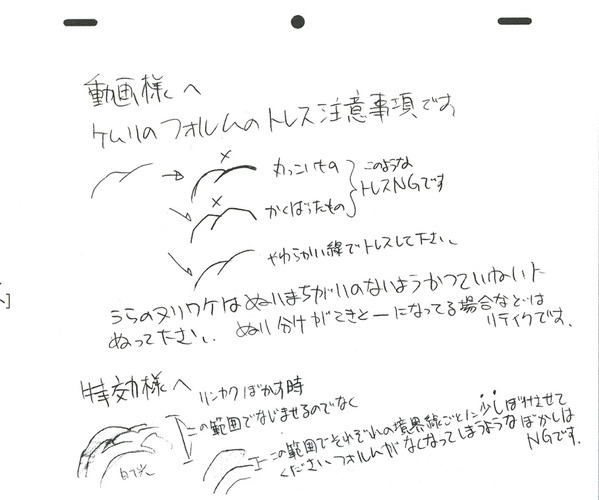 動画様へ
ケムリのフォルムのトレス注意事項です
カっこいもの
かくばったもの
このような
トレスNGです
やわらかい線でトレスして下さい、
うらのヌリワケはぬりまちがいのないようかつていねいに
ぬって下さい。 ぬり分けがてきとーになってる場合などは
リテイクです.
特効様へ リンカクぼかす時
この範囲でなじませるのでなく
この範囲でそれぞれの境界線ごとに少しぼけさせて
ください フォルムがなくなってしまうようなぼかしは
NGです.